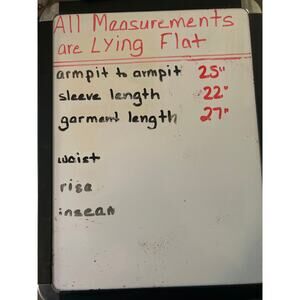 All Measurements
are Lying Flat
armpit to armpit 25"
sleeve length 22"
garment length 27"
waist
rise
inseam